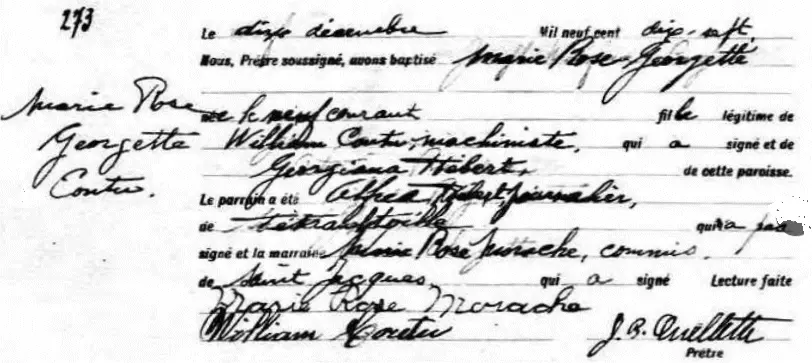 273
Le dix décembre Mil neuf cent dix-sept,
Nous, Prêtre soussigné, avons baptisé Marie Rose Georgette
Marie Rose
Georgette
Coutu.
née le neuf courant fille légitime de
William Coutu, machiniste, qui a signé et de
Georgiana Hébert, de cette paroisse.
Le parrain a été Alfred Hébert, journalier,
de Tétraultville qui n'a pas
signé et la marraine Marie Rose Morache, commis,
de Saint Jacques, qui a signé Lecture faite
Marie Rose Morache
William Coutu J. B. Ouellette
Prêtre